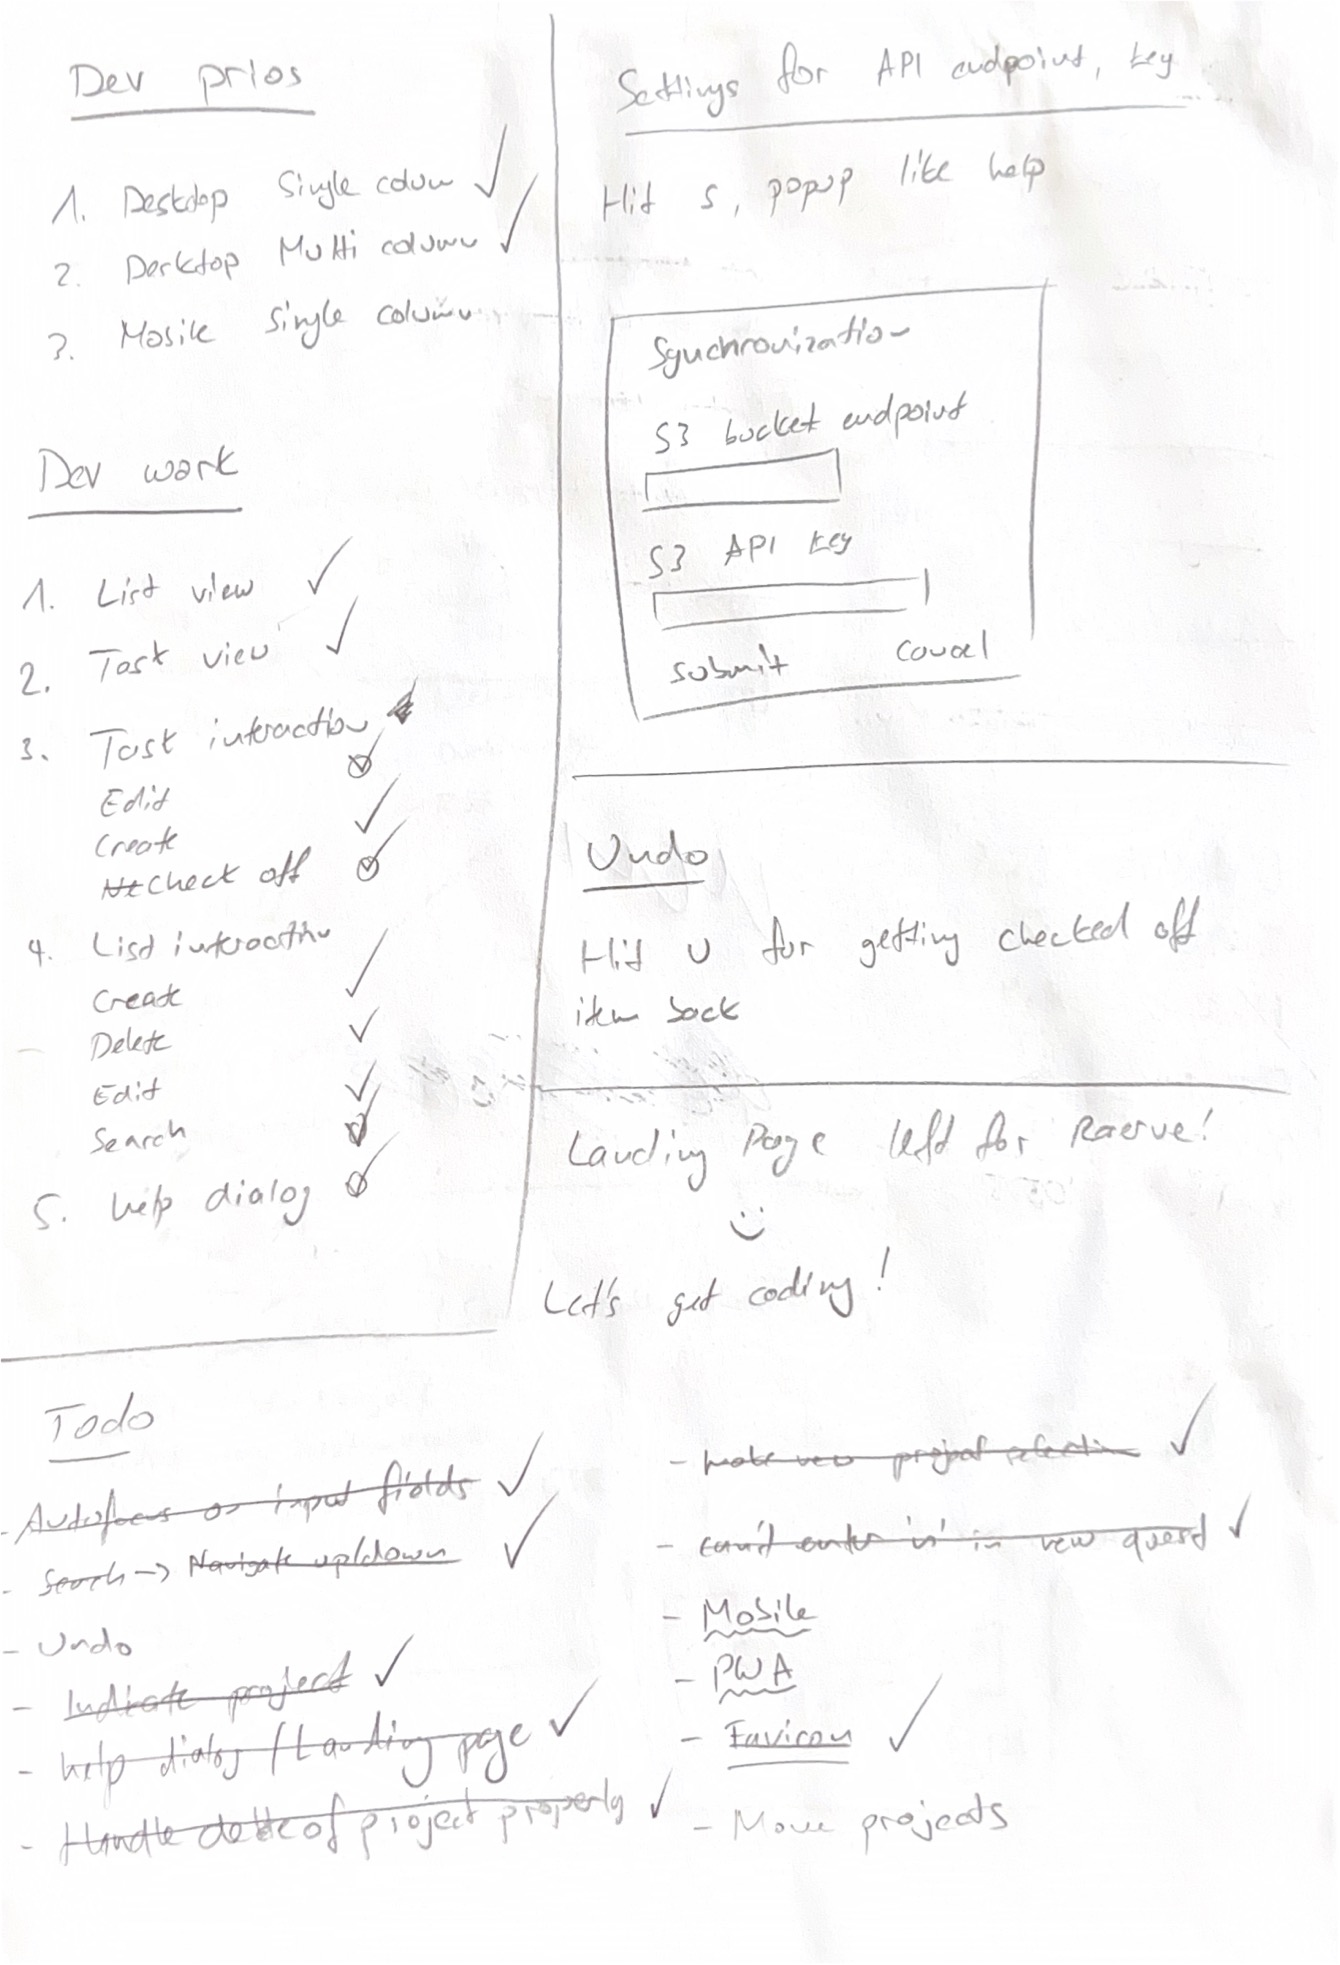 Dev prios
1. Desktop Single column ✓
2. Desktop Multi column ✓
3. Mobile Single column
Dev work
1. List view ✓
2. Task view ✓
3. Task interaction
Edit ✓
Create ✓
Check off ✓
4. List interaction
Create ✓
Delete ✓
Edit ✓
Search ✓
5. help dialog ✓
Settings for API endpoint, key
Hit s, popup like help
Synchronization
S3 bucket endpoint
S3 API key
Submit Cancel
Undo
Hit U for getting checked off
item back
Landing Page left for
Let's get coding!
Todo
- Autofocus on input fields ✓
- Search -> Navigate up/down ✓
- Undo
- Indicate project ✓
- help dialog / Landing page ✓
- Handle delete of project properly ✓
- make new project selection ✓
- can't enter 'n' in new ✓
- Mobile
- PWA
- Favicon ✓
- Move projects